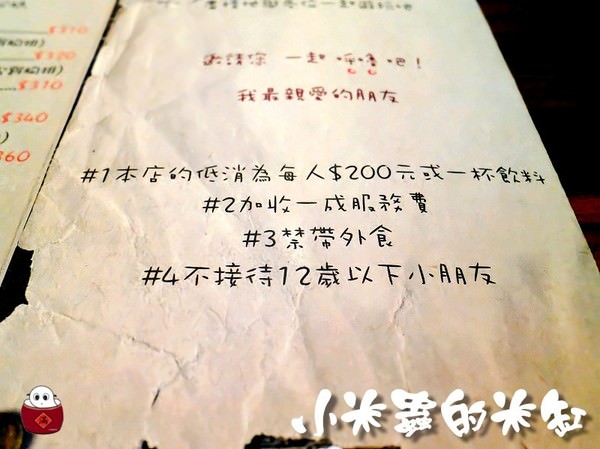 $310
$320
$310
$340
360
邀請您 一起 呼嚕吧！
我最親愛的朋友
#1本店的低消為每人$200元或一杯飲料
#2加收一成服務費
#3禁帶外食
#4不接待12歲以下小朋友
小米蟲的米缸